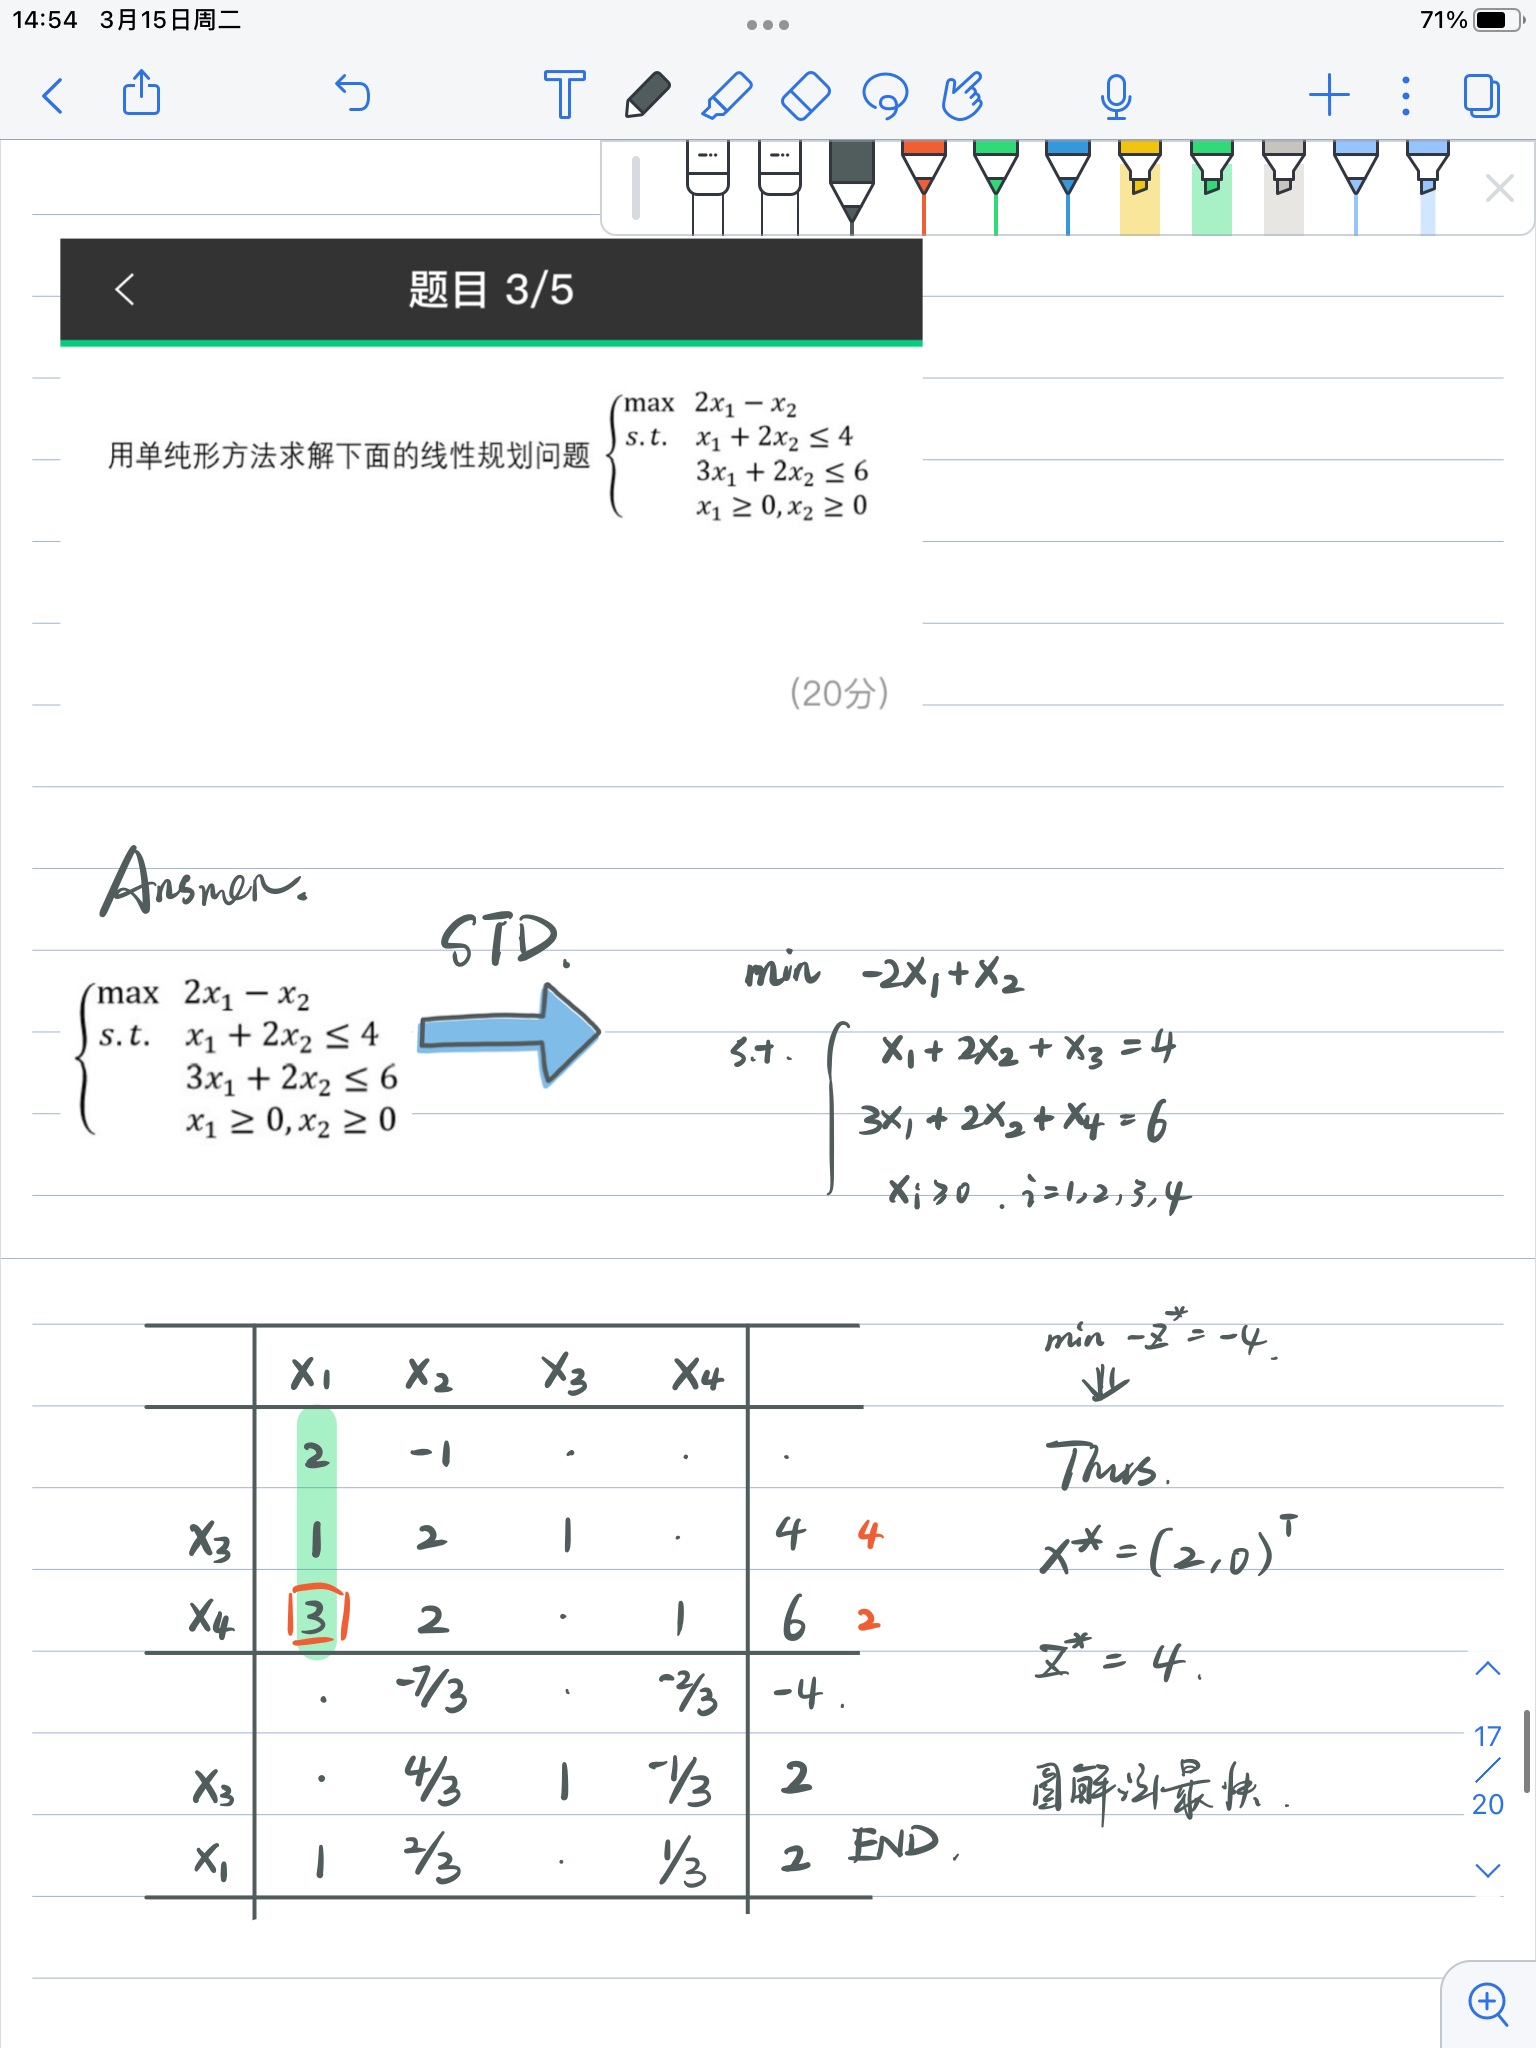 14:54 3月15日周二
71%
题目 3/5
用单纯形方法求解下面的线性规划问题
max 2x₁ − x₂
s.t. x₁ + 2x₂ ≤ 4
3x₁ + 2x₂ ≤ 6
x₁ ≥ 0, x₂ ≥ 0
(20分)
Answer.
STD.
max 2x₁ − x₂
s.t. x₁ + 2x₂ ≤ 4
3x₁ + 2x₂ ≤ 6
x₁ ≥ 0, x₂ ≥ 0
min -2x₁+x₂
s.t. x₁ + 2x₂ + x₃ = 4
3x₁ + 2x₂ + x₄ = 6
xᵢ≥0 . i=1,2,3,4
x₁ x₂ x₃ x₄
2 -1 · · ·
x₃ 1 2 1 · 4 4
x₄ 3 2 · 1 6 2
· -7/3 · -2/3 -4 .
x₃ · 4/3 1 -1/3 2
x₁ 1 2/3 · 1/3 2 END.
min -z* = -4.
Thus.
x* = (2,0)ᵀ
z* = 4.
图解法最快.
17
/
20